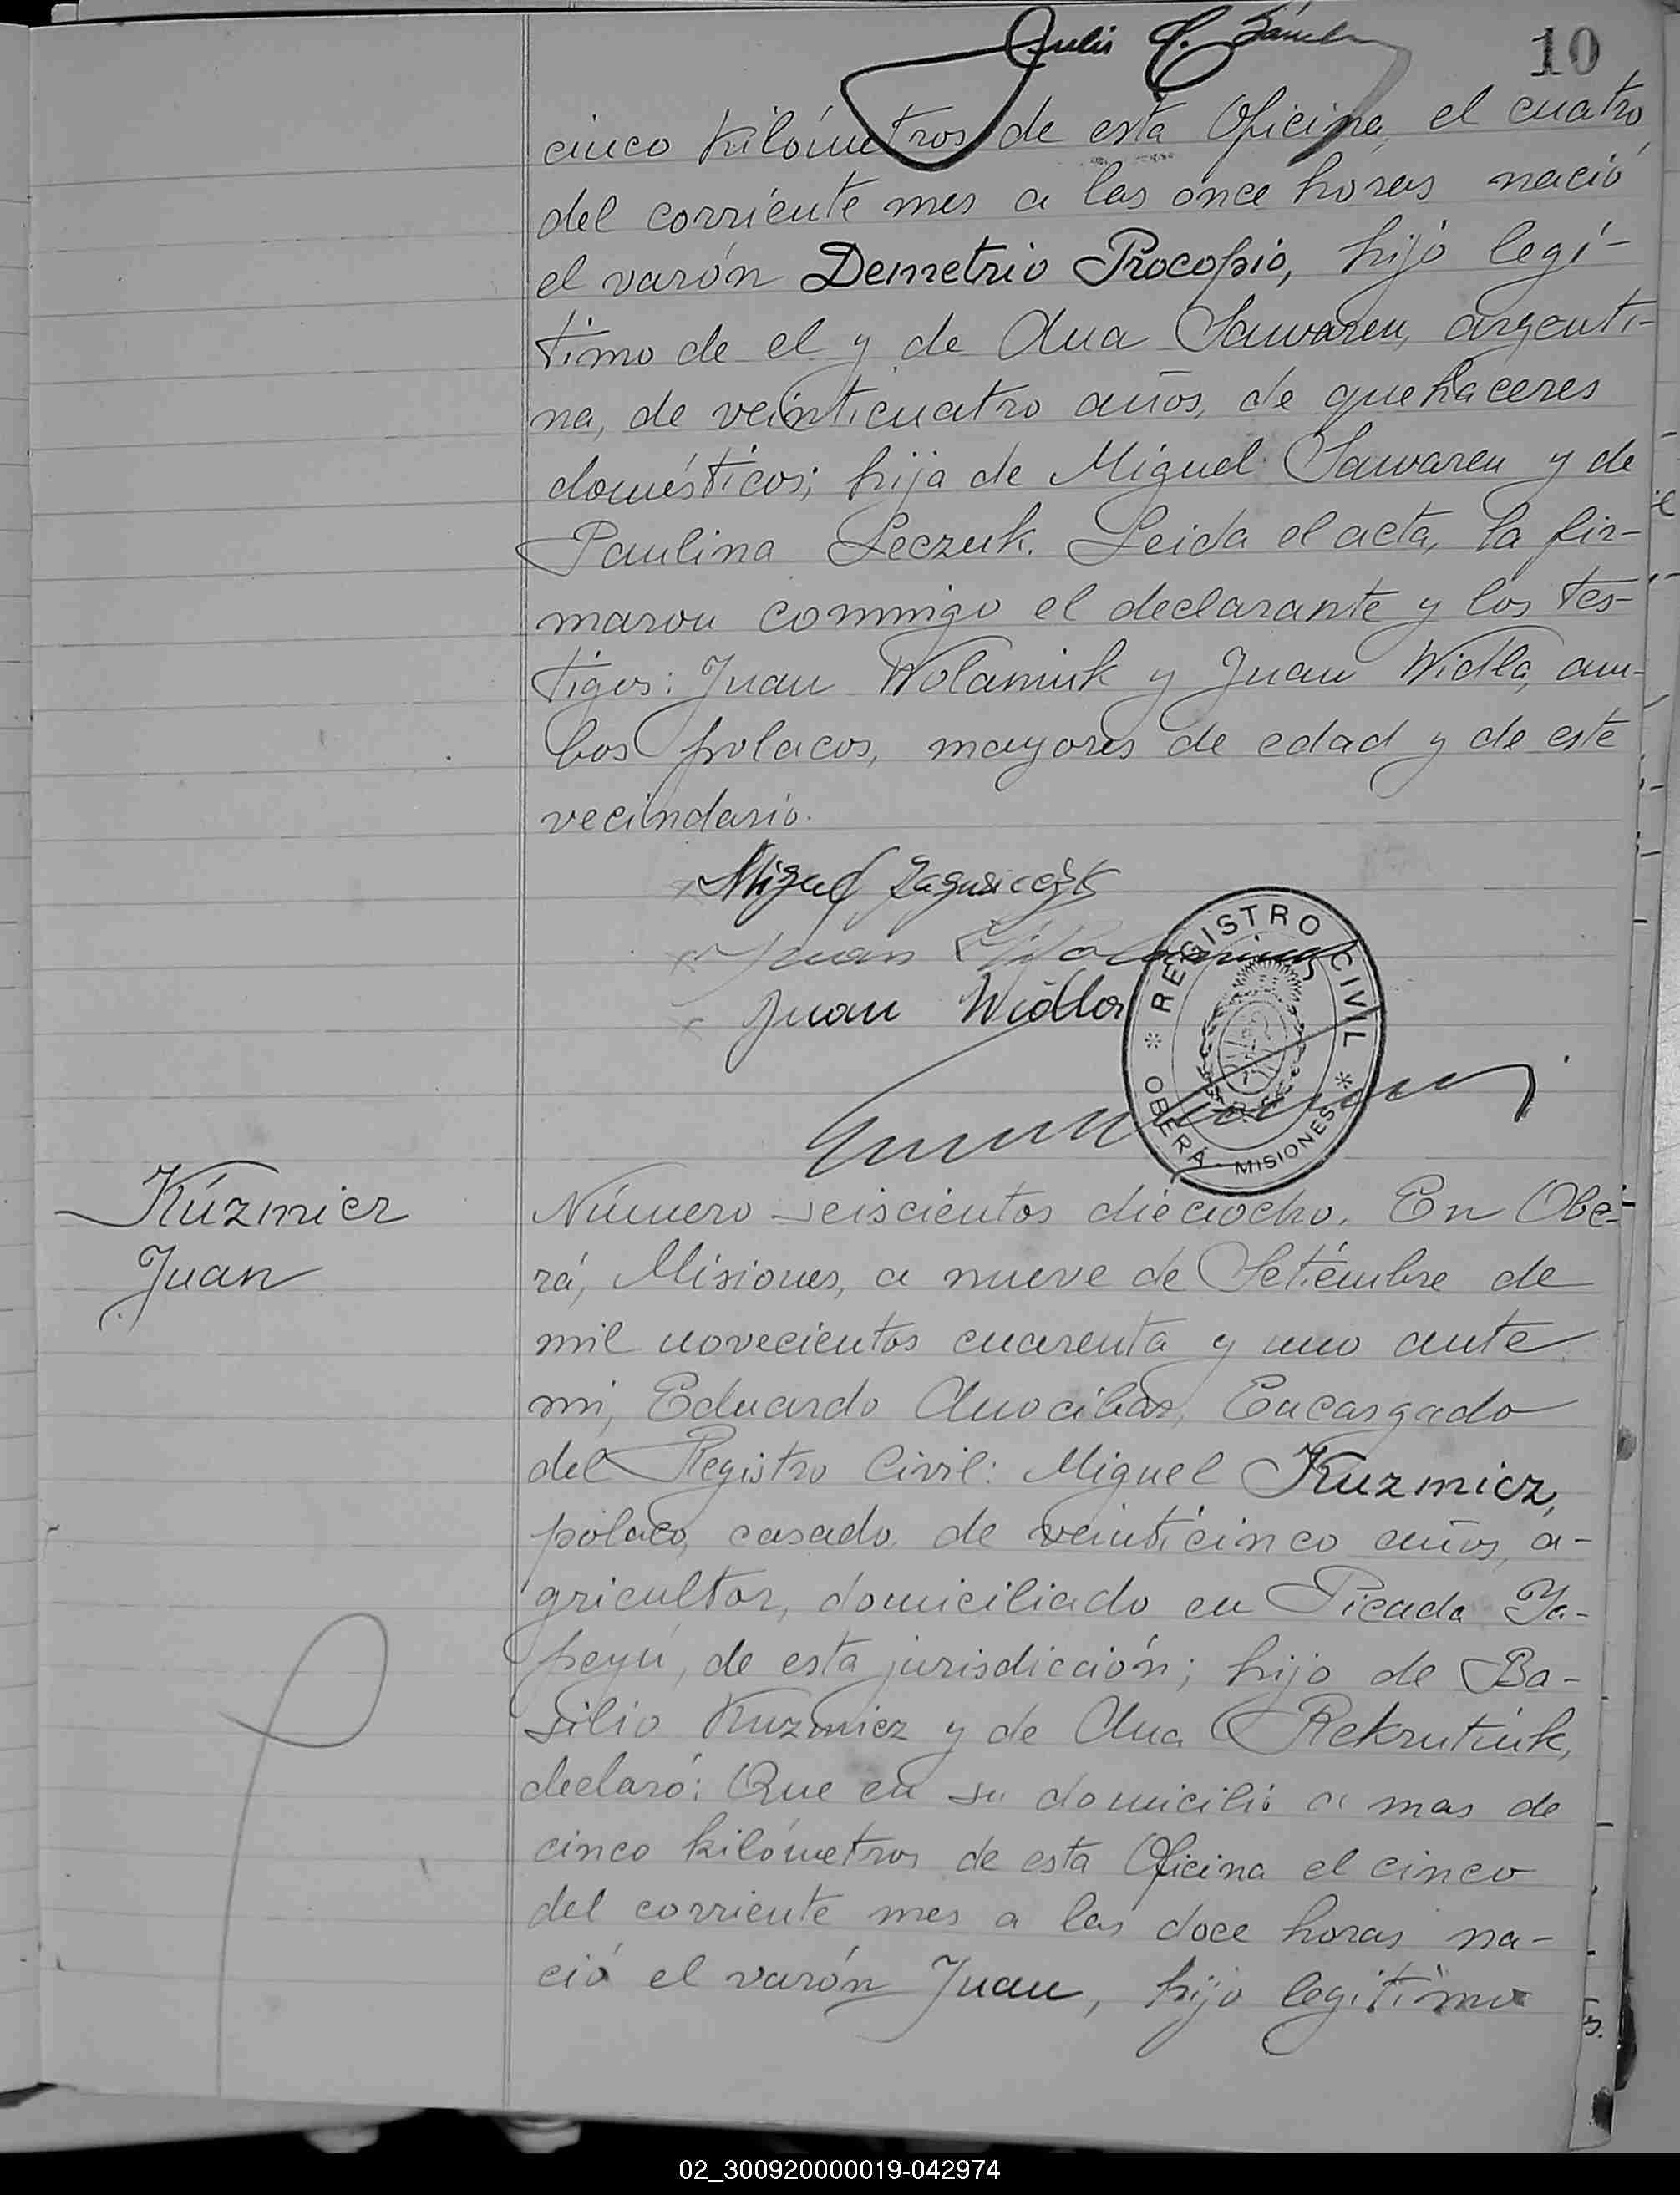 10
cinco kilómetros de esta Oficina, el cuatro
del corriente mes a las once horas nació
el varón Demetrio Procopio, hijo legí-
timo de el y de Ana Sawaren, argenti-
na, de veinticuatro años, de quehaceres
domésticos; hija de Miguel Sawaren y de
Paulina Leczuk. Leida el acta, la fir-
maron conmigo el declarante y los tes-
tigos: Juan Wolaniuk y Juan Widla, am-
bos polacos, mayores de edad y de este
vecindario.
Miguel
Juan
Juan Widla
REGISTRO CIVIL
OBERÁ - MISIONES
Kúzmicz
Juan
Número seiscientos dieciocho. En Obe-
rá, Misiones, a nueve de Setiembre de
mil novecientos cuarenta y uno ante
mi, Eduardo Anocibar, Encargado
del Registro Civil: Miguel Kuzmicz,
polaco, casado, de veinticinco años, a-
gricultor, domiciliado en Picada Ya-
peyú, de esta jurisdicción; hijo de Ba-
silio Kuzmicz y de Ana Rekrutiuk,
declaró: Que en su domicilio a mas de
cinco kilómetros de esta Oficina el cinco
del corriente mes a las doce horas na-
ció el varón Juan, hijo legítimo
02_300920000019-042974